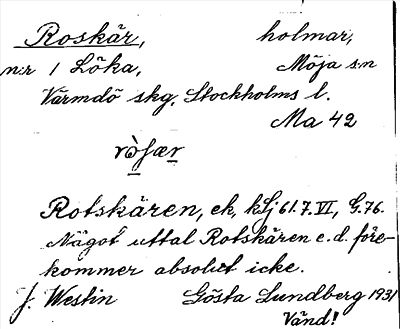 Roskär, holmar,
n:r 1 Löka, Möja s:n
Värmdö skg, Stockholms l.
Ma 42
Rotskären, ek, kSj 61.7.VI, G.76.
Något uttal Rotskären e.d. före-
kommer absolut icke.
J. Westin Gösta Lundberg 1931
Vänd!